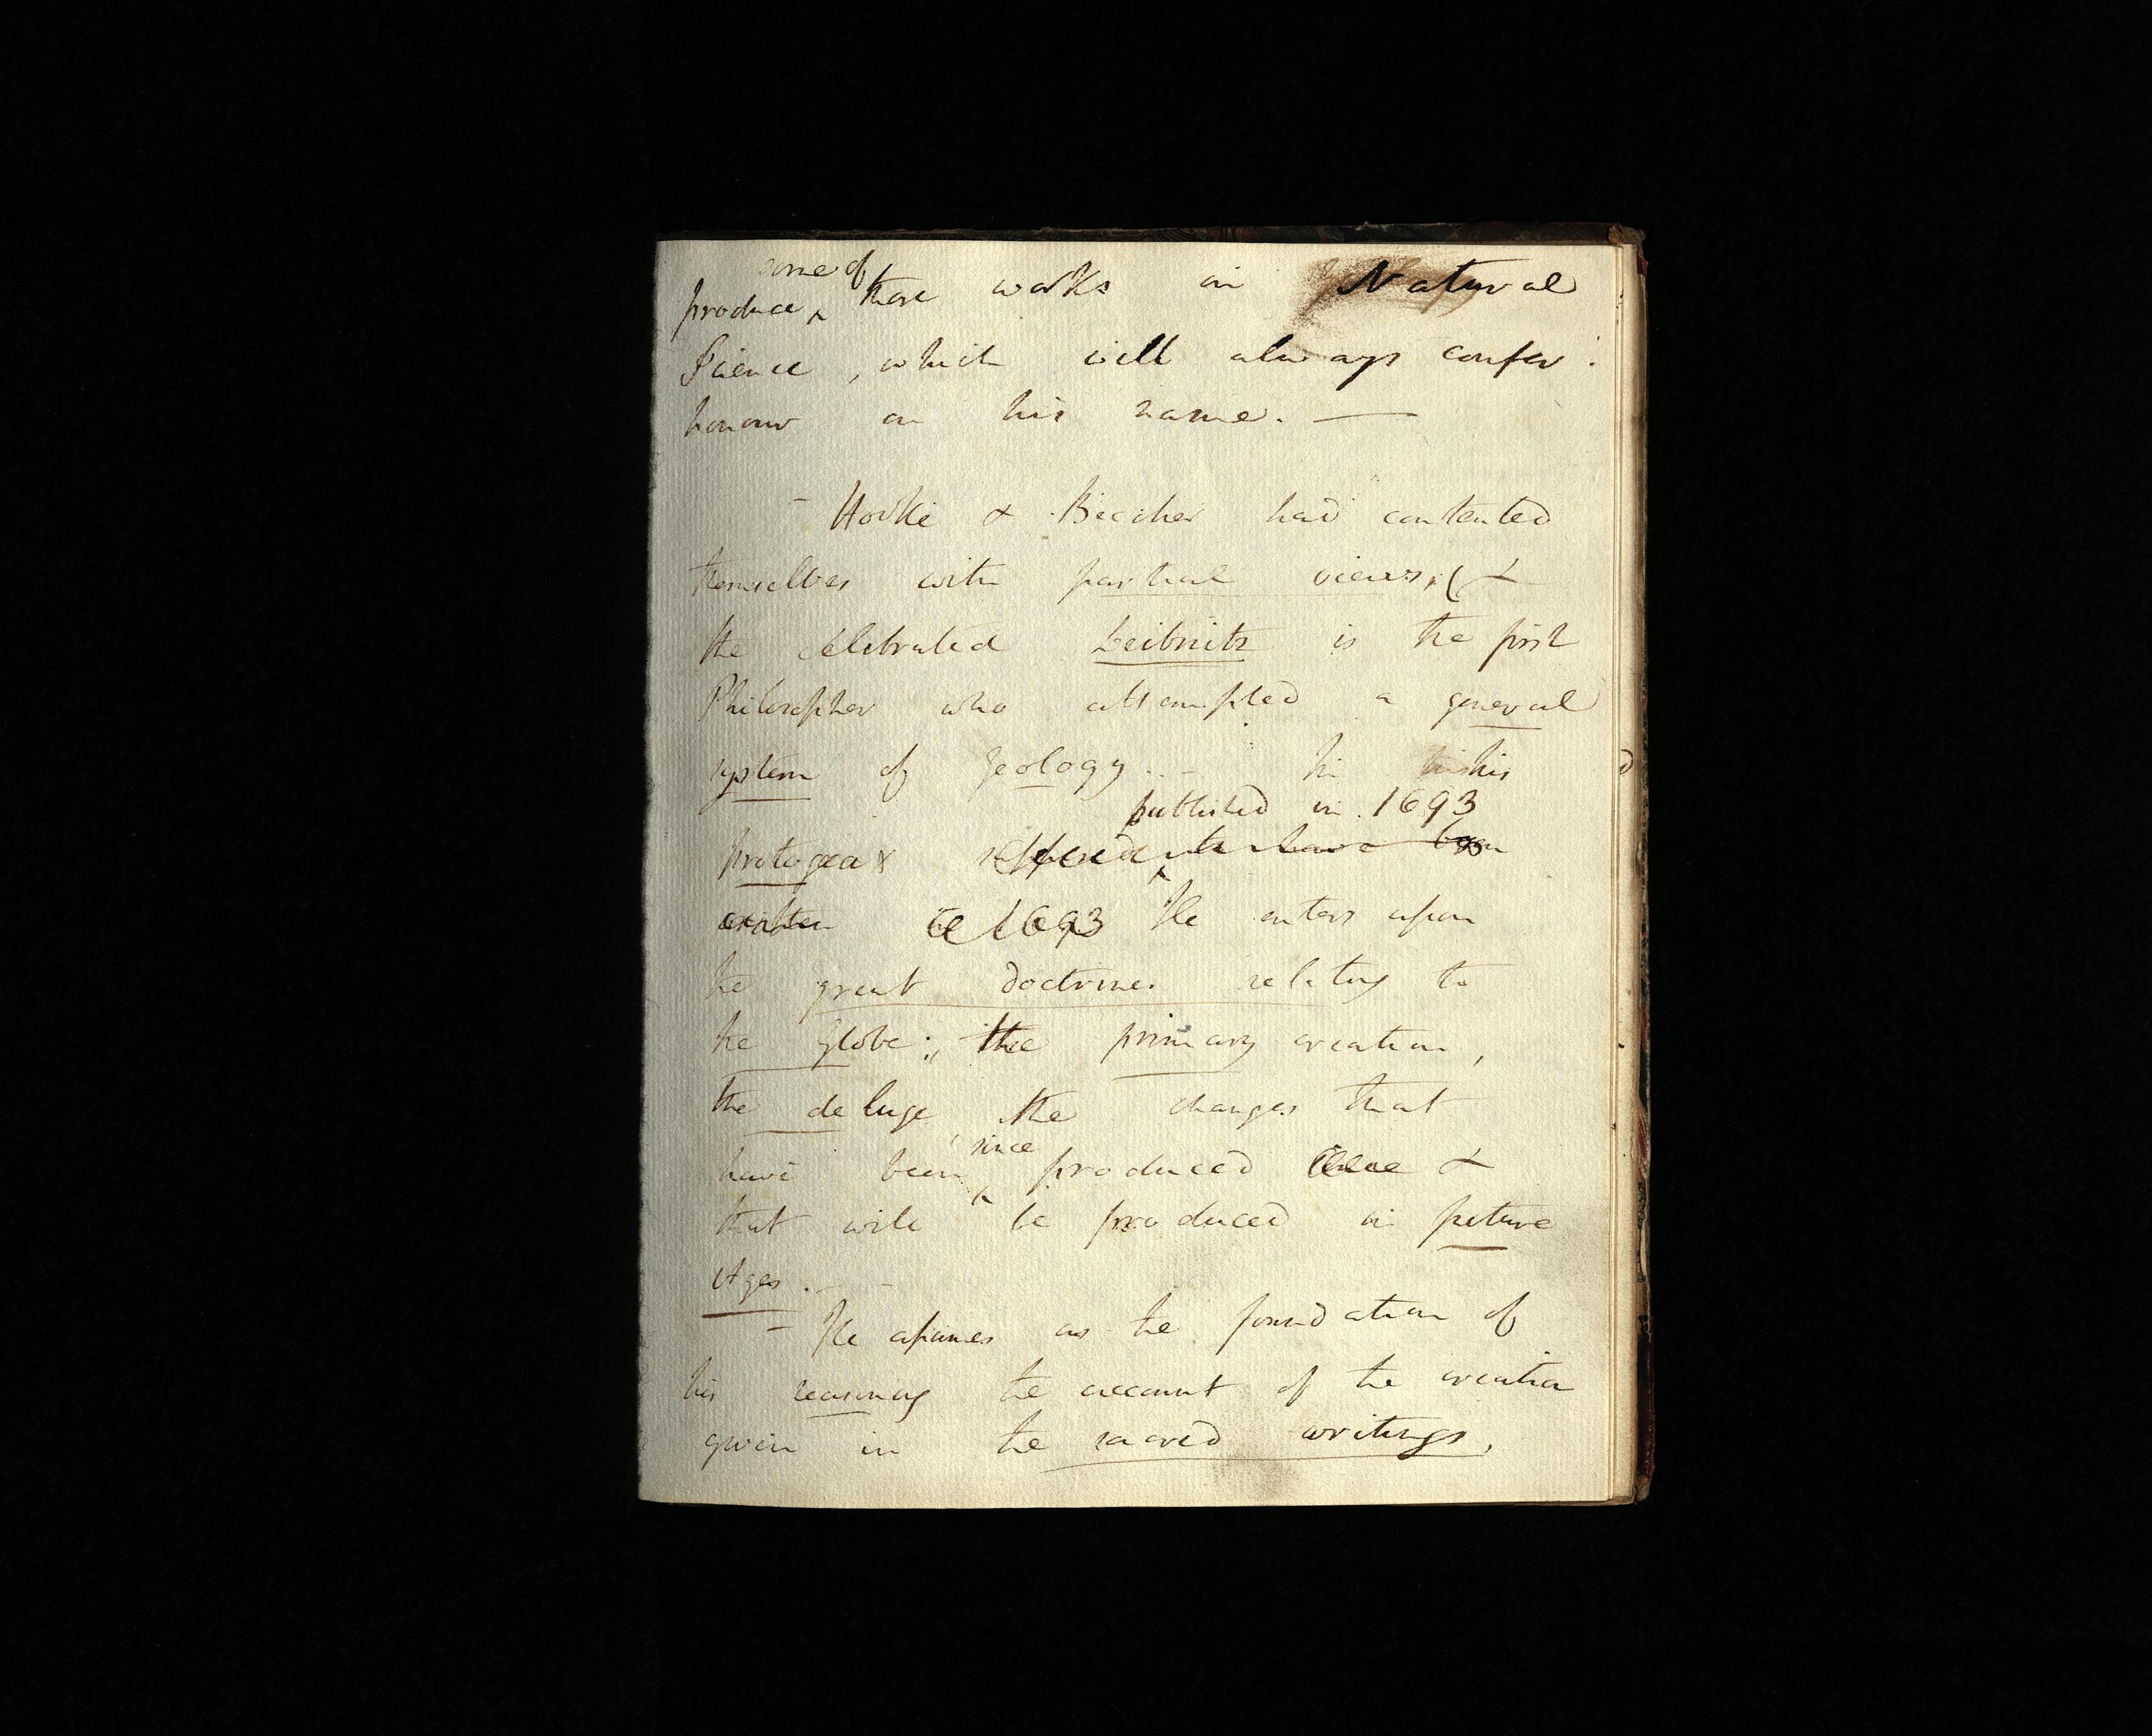 some of
produce ^ those works in Natural
Science, which will always confer
honour on his name. —
– Hooke & Beccher had contented
themselves with partial views; &
the celebrated Leibnitz is the first
Philosopher who attempted a general
system of geology. – In his
published in 1693
protogaea supposed to have been
written in 1693 He enters upon
the great doctrines relating to
the Globe; the primary creation,
the deluge, the changes that
since
have been ^ produced &
that will be produced in future
Ages. –
– He assumes as the foundation of
his reasoning the account of the creation
given in the sacred writings,